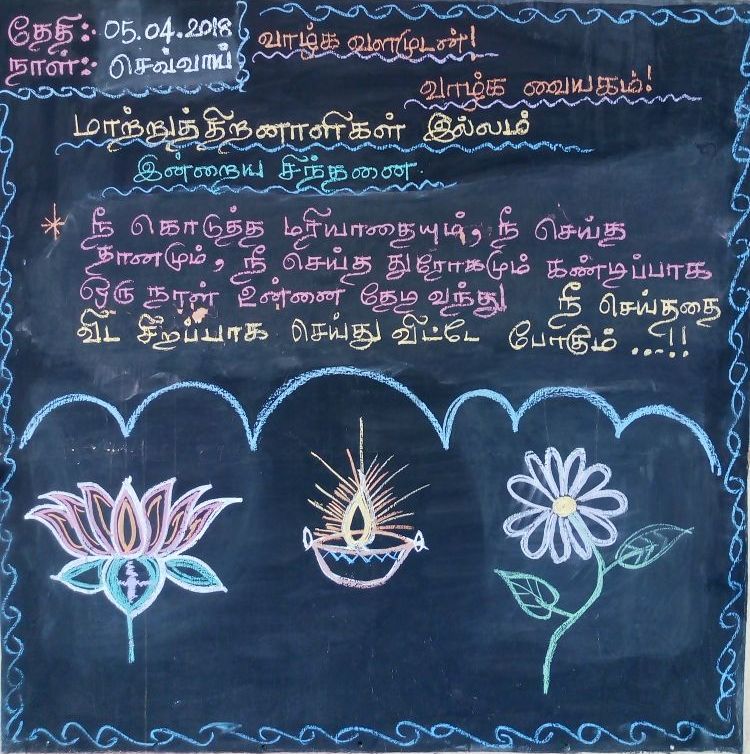 தேதி:- 05.04.2018
நாள்:- செவ்வாய்
வாழ்க வளமுடன்!
வாழ்க வையகம்!
மாற்றுத்திறனாளிகள் இல்லம்
இன்றைய சிந்தனை.
நீ கொடுத்த மரியாதையும், நீ செய்த
தானமும், நீ செய்த துரோகமும் கண்டிப்பாக
ஒரு நாள் உன்னை தேடி வந்து நீ செய்ததை
விட சிறப்பாக செய்து விட்டே போகும் ...!!